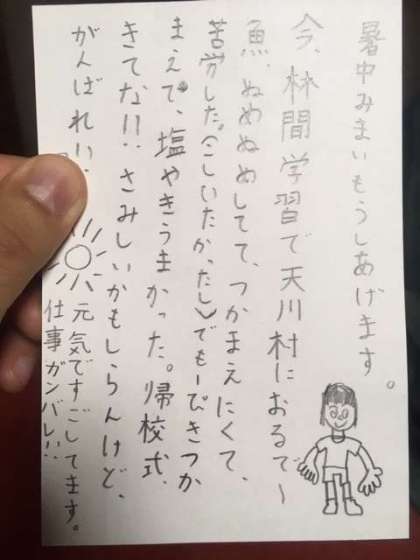 暑中みまいもうしあげます。
今、林間学習で天川村におるで〜
魚、ぬめぬめしてて、つかまえにくて、
苦労した。(こしいたかったし)でも一ぴきつか
まえで、塩やきうまかった。帰校式、
きてな!!さみしいかもしらんけど、
がんばれい!!
元気ですごしてます。
仕事ガンバレ!!